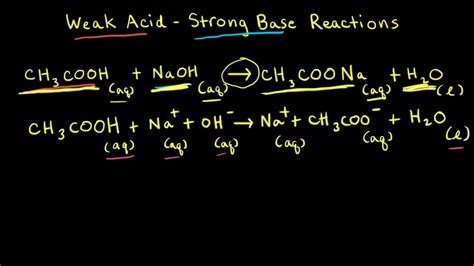 Weak Acid - Strong Base Reactions
CH₃COOH (aq) + NaOH (aq) → CH₃COONa (aq) + H₂O (l)
CH₃COOH (aq) + Na⁺ (aq) + OH⁻ (aq) → Na⁺ (aq) + CH₃COO⁻ (aq) + H₂O (l)